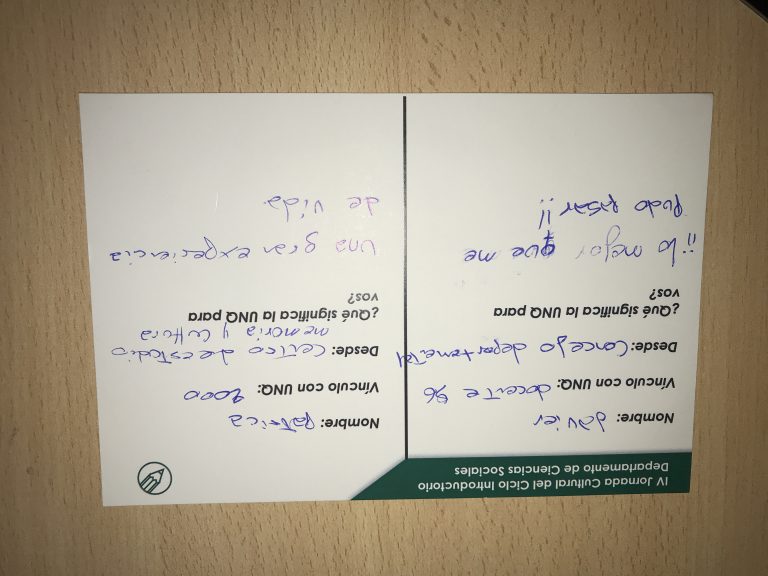 IV Jornada Cultural del Ciclo Introductorio
Departamento de Ciencias Sociales
Nombre: Javier
Vínculo con UNQ: docente 96
Desde: Concejo departamental
¿Qué significa la UNQ para
vos?
¡¡lo mejor que me
pudo pasar!!
Nombre: Patricia
Vínculo con UNQ: 2000
Desde: centro de estudio
memoria y cultura
¿Qué significa la UNQ para
vos?
una gran experiencia
de vida.